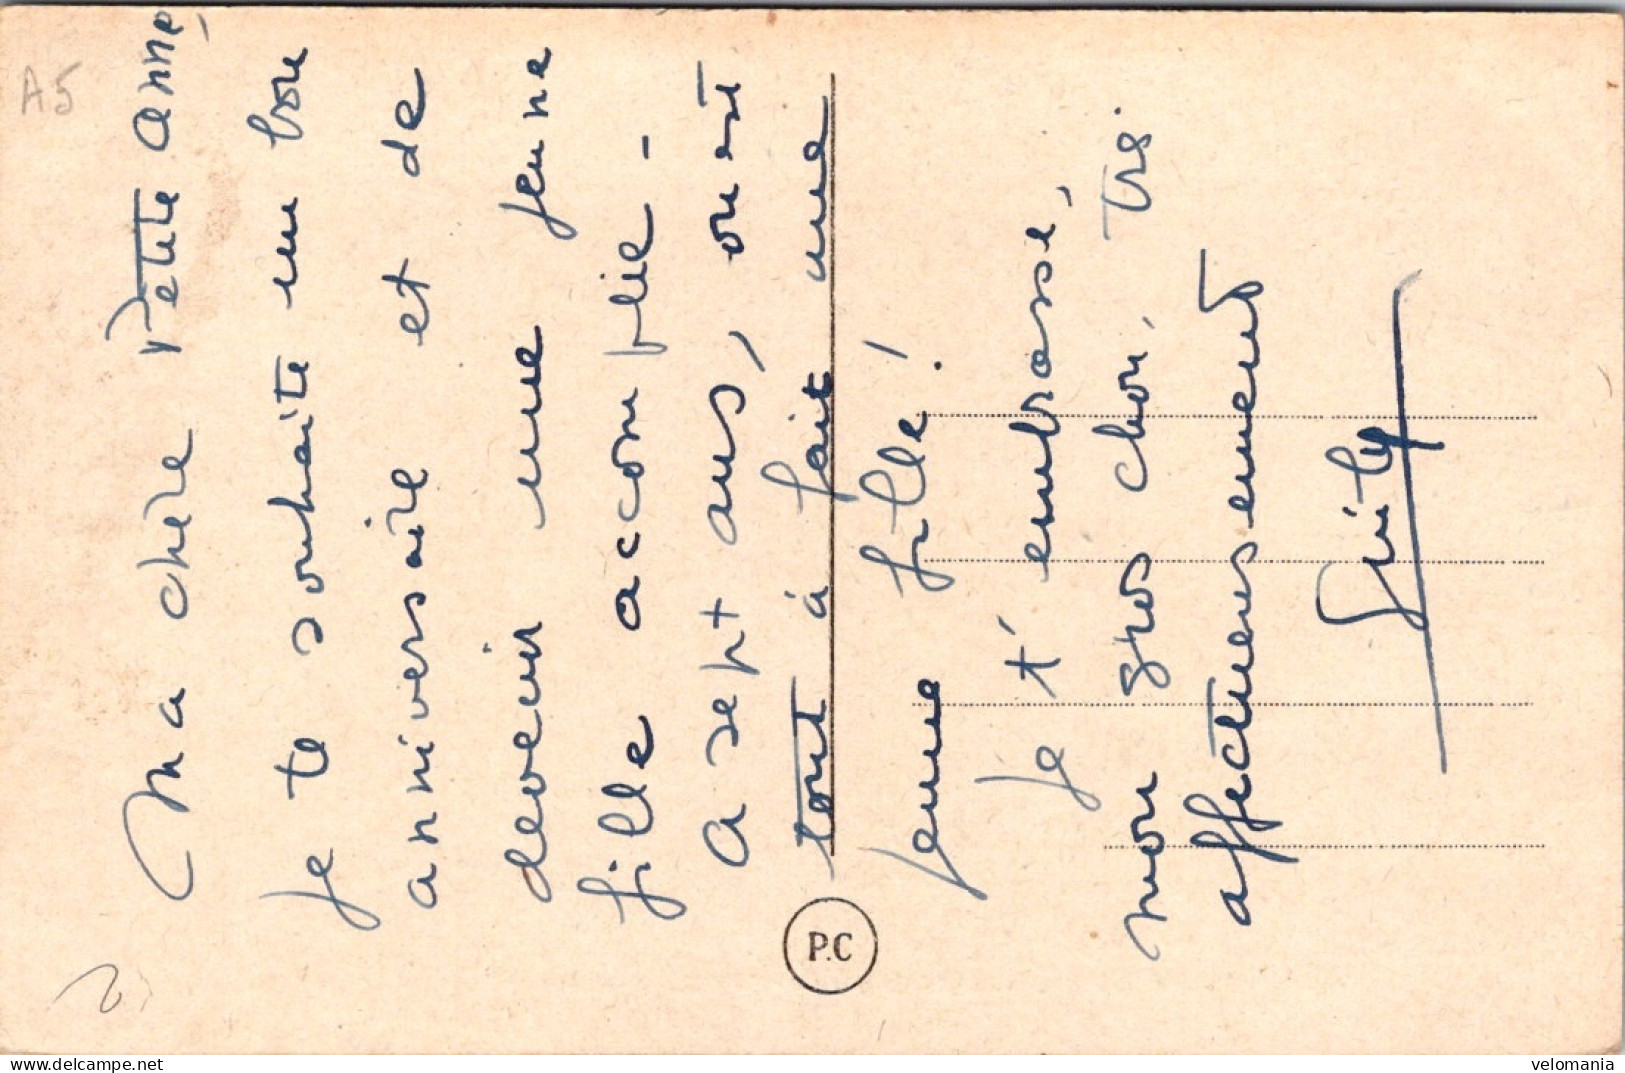 Ma chère Petite Anne,
Je te souhaite un bon
anniversaire et de
devenir une jeune
fille accomplie -
A sept ans, on est
tout à fait une
jeune fille !
Je t'embrasse,
mon gros chou, très
affectueusement
P.C
A5
www.delcampe.net
velomania